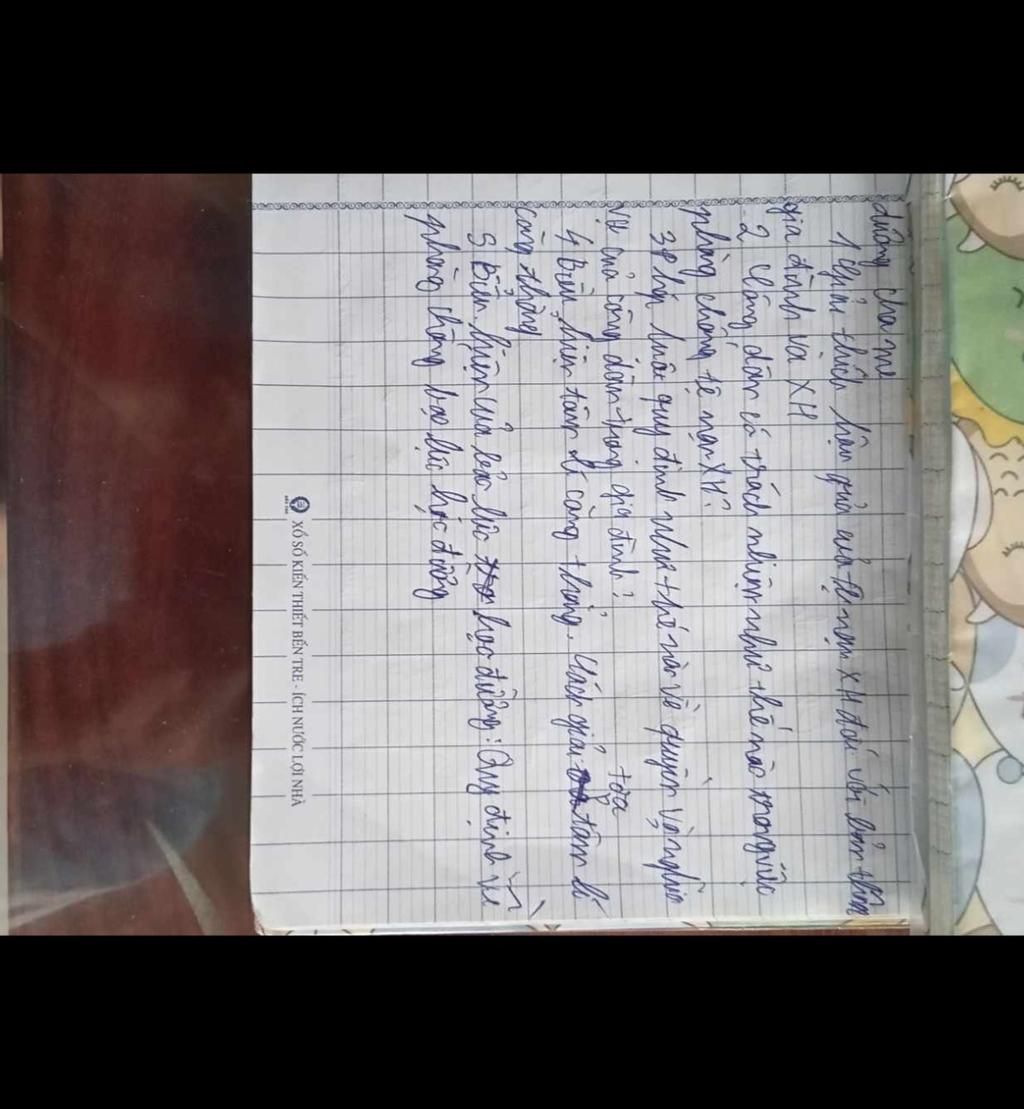 dưỡng cha mẹ
1 Giải thích hậu quả của tệ nạn XH đối với bản thân
gia đình và XH
2 Công dân có trách nhiệm như thế nào trong việc
phòng chống tệ nạn XH?
3 Pháp luật quy định như thế nào về quyền và nghĩa
vụ của công dân trong gia đình?
4 Biểu hiện tâm lí căng thẳng. Cách giải tỏa tâm lí
căng thẳng
5 Biểu hiện của bạo lực học đường: Quy định về
phòng chống bạo lực học đường
XỔ SỐ KIẾN THIẾT BẾN TRE - ÍCH NƯỚC LỢI NHÀ